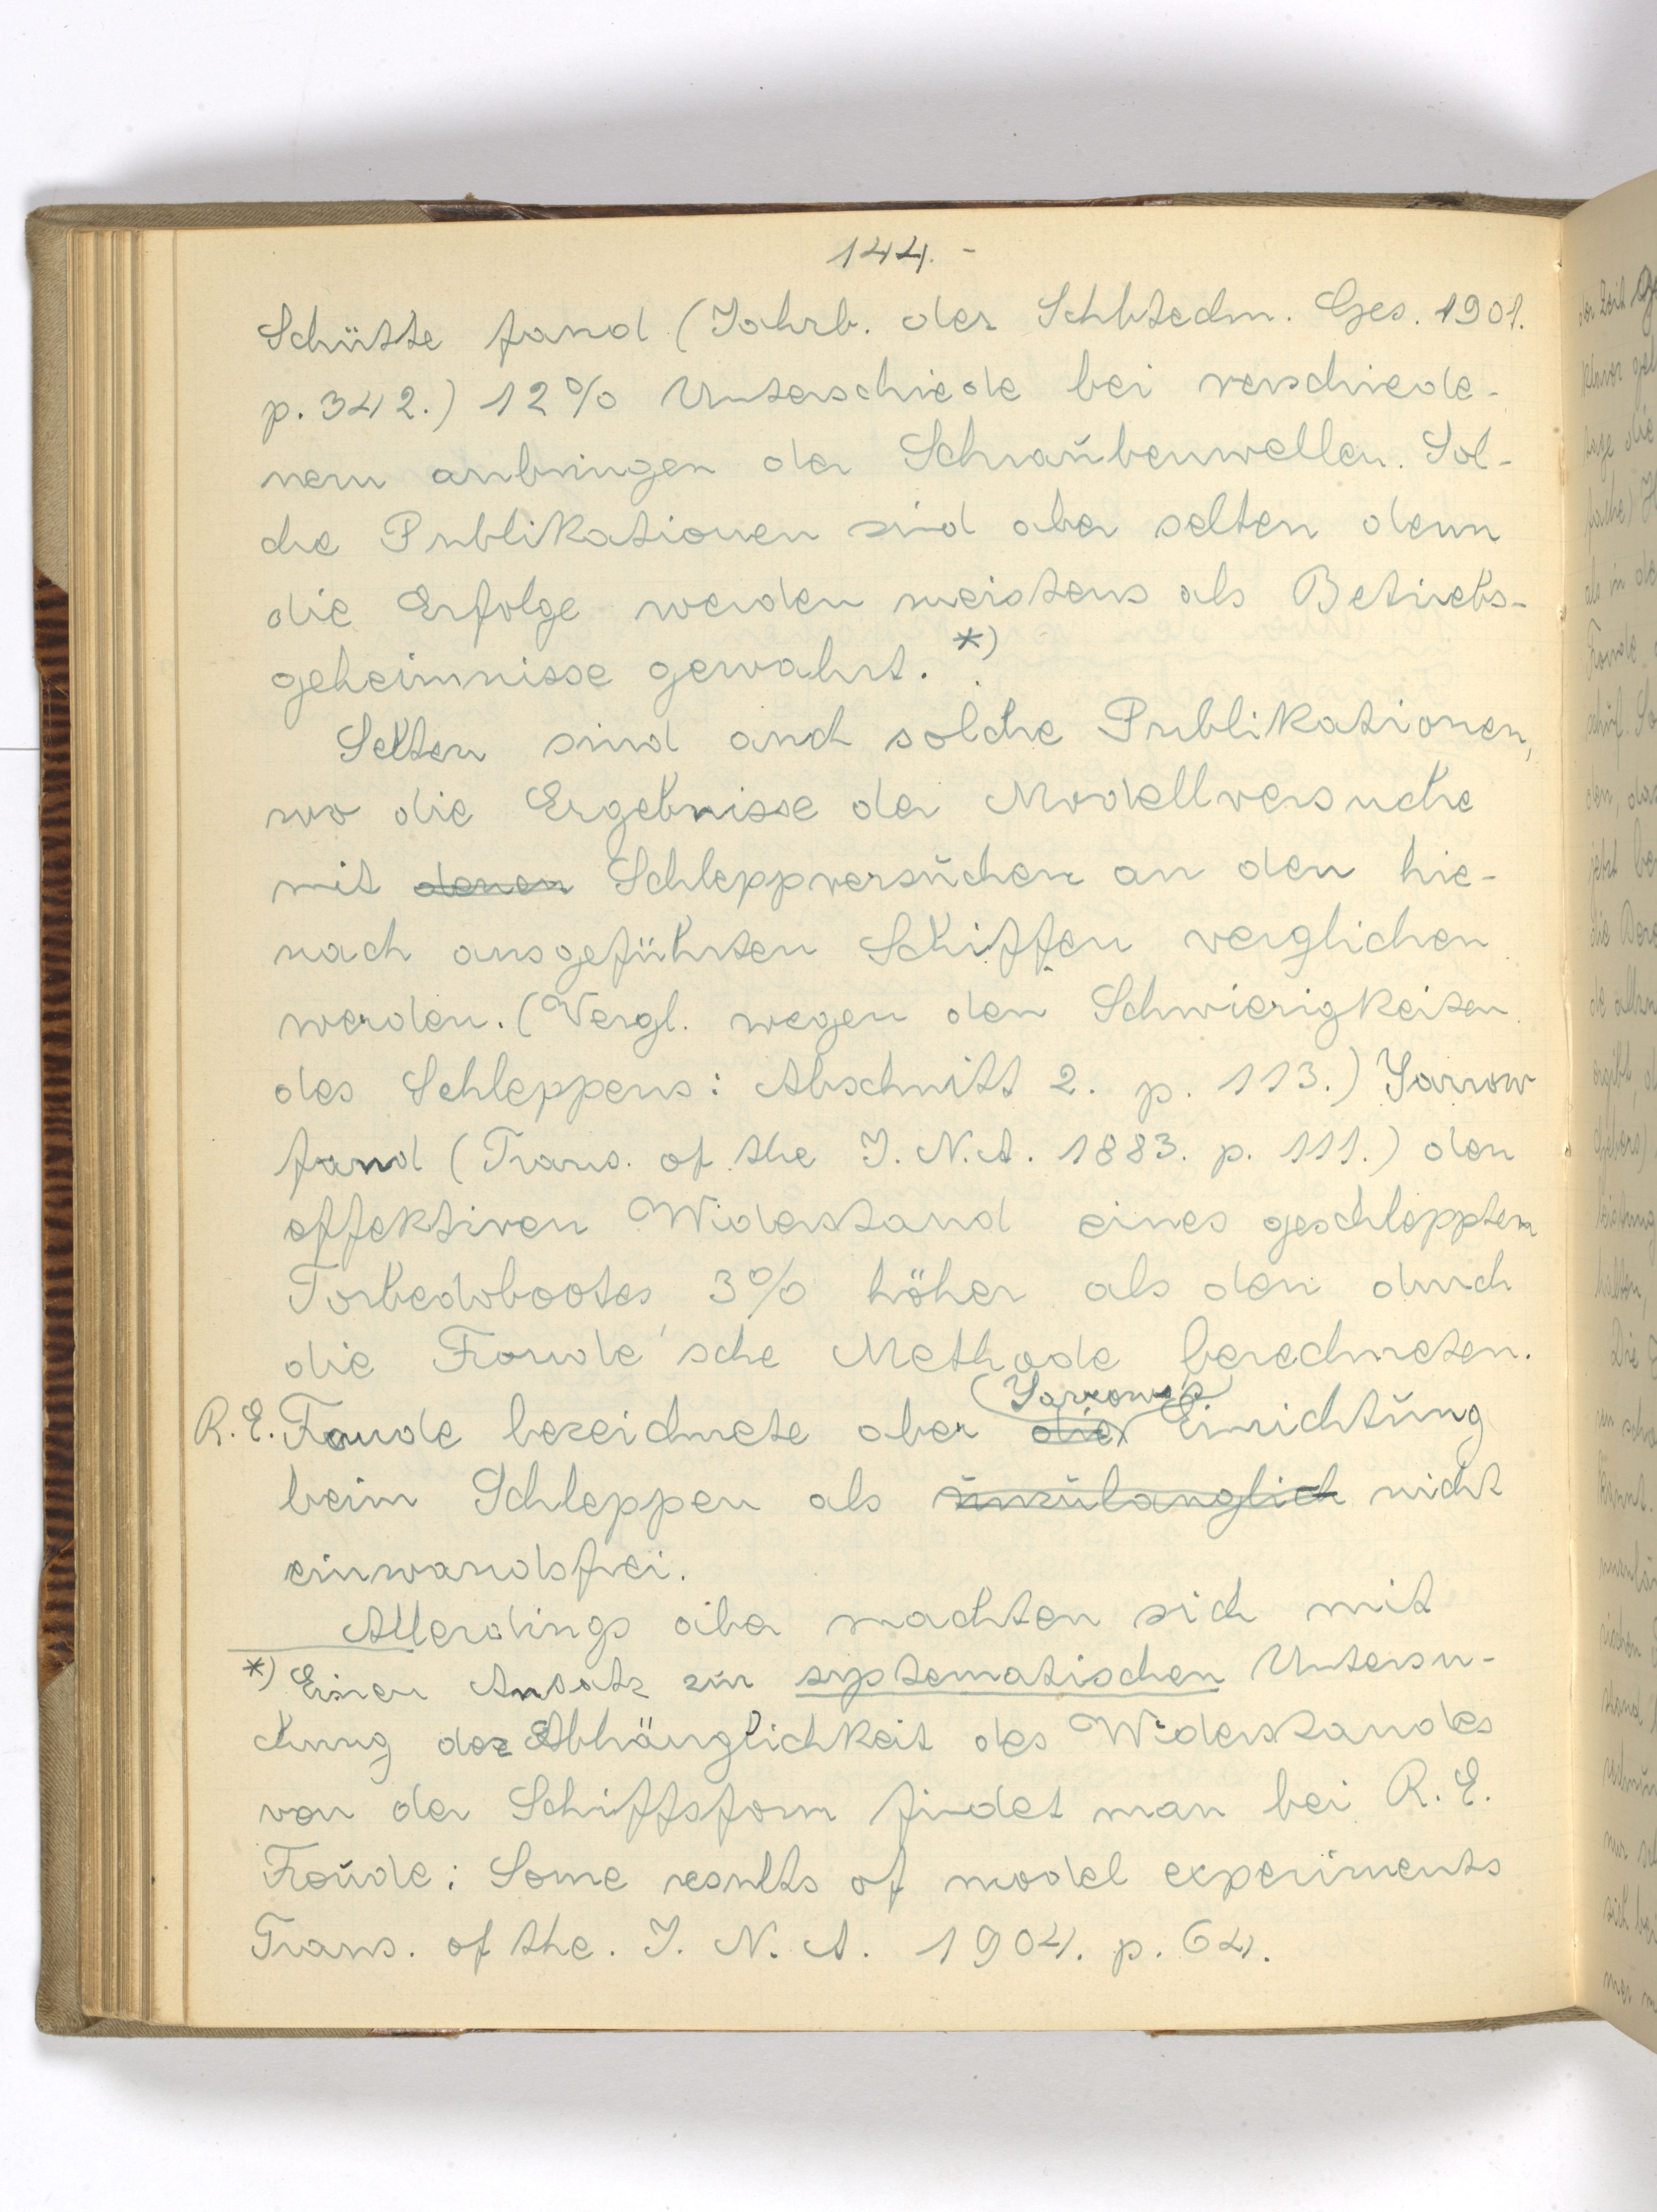 144. -
Schütte fand (Jahrb. der Schbtechn. Ges. 1901.
p. 342.) 12% Unterschiede bei verschiede-
nem anbringen der Schraubenwellen. Sol-
che Publikationen sind aber selten denn
die Erfolge werden meistens als Betriebs-
geheimnisse gewahrt. *)
Selten sind auch solche Publikationen,
wo die Ergebnisse der Modellversuche
mit denen Schleppversuchen an den hie-
nach ausgeführten Schiffen verglichen
werden. (Vergl. wegen den Schwierigkeiten
des Schleppens: Abschnitt 2. p. 113.) Yarrow
fand (Trans. of the I. N. A. 1883. p. 111.) den
effektiven Widerstand eines geschleppten
Torbedobootes 3% höher als den durch
die Froude'sche Methode berechneten.
R. E. Froude bezeichnete aber die (Yarrow's) Einrichtung
beim Schleppen als unzulänglich nicht
einwandsfrei.
Allerdings aber machten sich mit
*) Einen Ansatz zur systematischen Untersu-
chung der Abhänglichkeit des Widerstandes
von der Schiffsform findet man bei R. E.
Froude: Some results of model experiments
Trans. of the. I. N. A. 1904. p. 64.